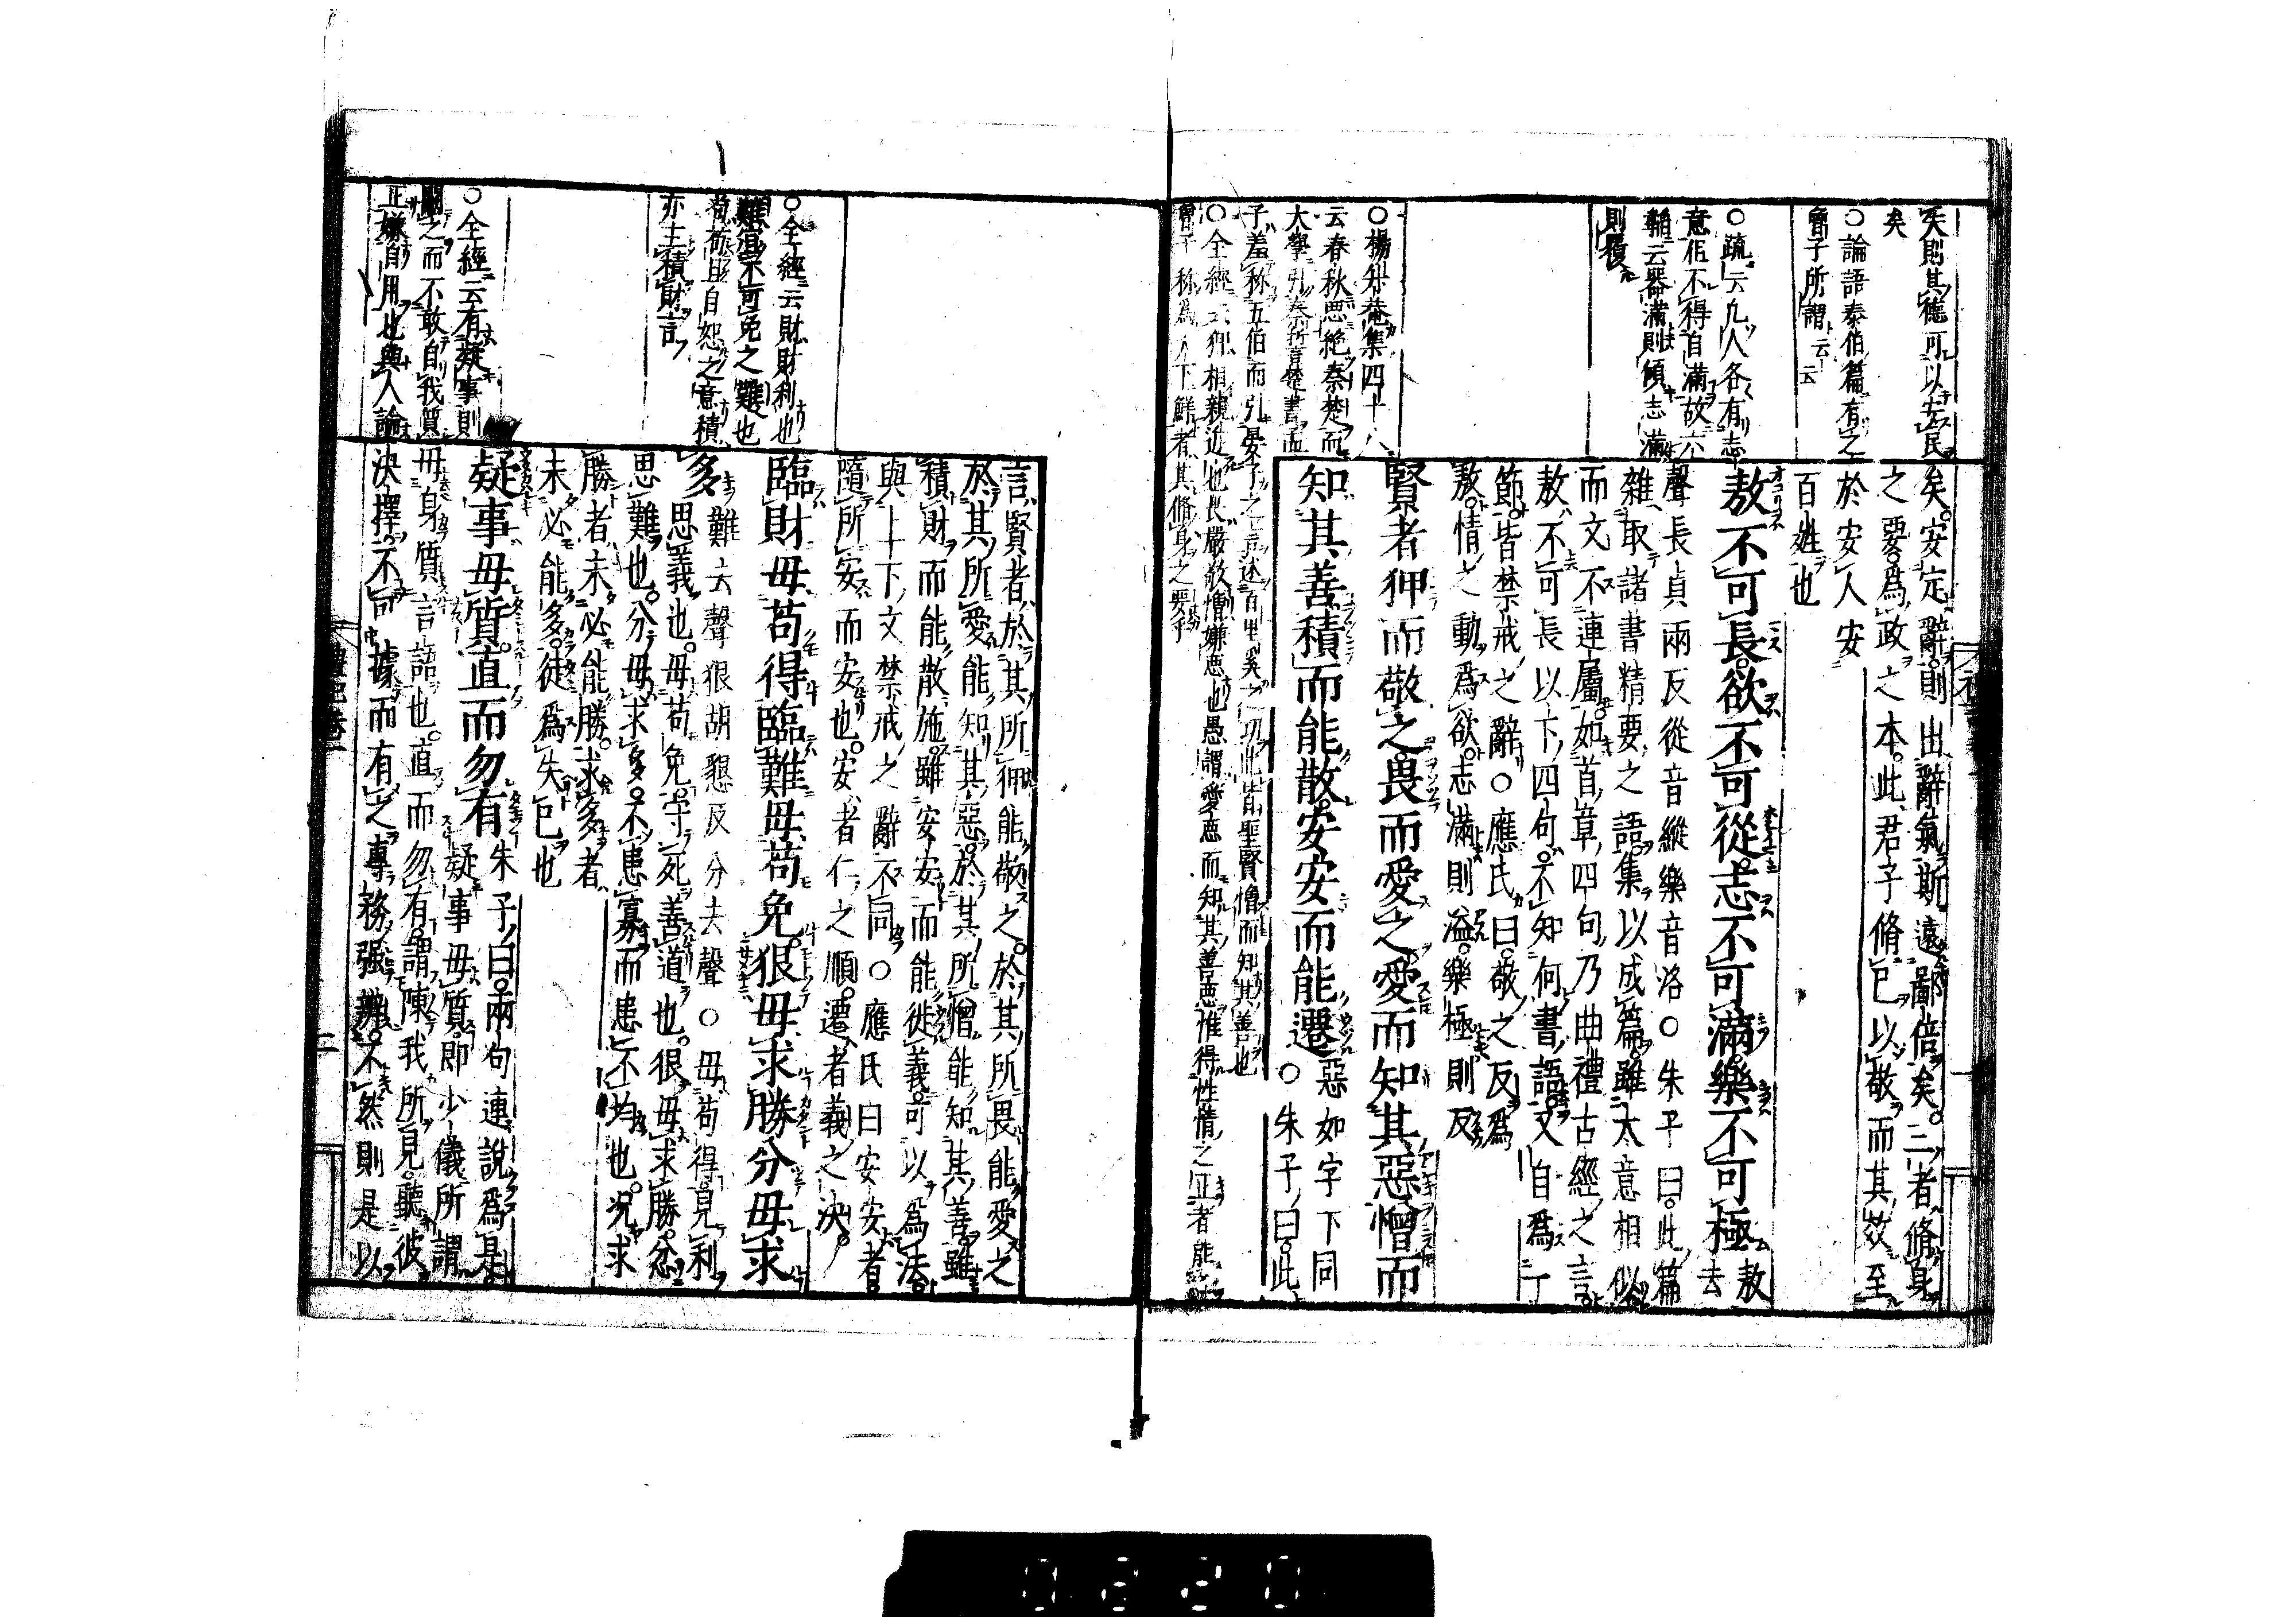 矣則其德可以安民
矣
○論語泰伯篇有之
曾子所謂云云
○疏云凡人各有志
意但不得自滿故六
韜云器滿則傾志滿
則覆
○楊升菴集四十八
云春秋思絶秦楚而
大學引秦誓楚書孟
子羞称五伯而引晏子之言述百里奚之功此皆聖賢憎而知其善也
○全經云狎相親近也畏嚴敬憎嫌惡也愚謂愛惡而知其善惡惟得性情之正者能
曾子称爲人下鮮者其脩身之要乎
矣安定辭則出辭氣斯遠鄙倍矣三者脩身
之要爲政之本此君子脩己以敬而其效至
於安人安
百姓也
敖不可長欲不可從志不可滿樂不可極敖去
聲長貞兩反從音縱樂音洛○朱子曰此篇
雜取諸書精要之語集以成篇雖大意相似
而文不連屬如首章四句乃曲禮古經之言
敖不可長以下四句不知何書語又自爲一
節皆禁戒之辭○應氏曰敬之反爲
敖情之動爲欲志滿則溢樂極則反
賢者狎而敬之畏而愛之愛而知其惡憎而
知其善積而能散安安而能遷惡如字下同
○朱子曰此
言賢者於其所狎能敬之於其所畏能愛之
於其所愛能知其惡於其所憎能知其善雖
積財而能散施雖安安而能徙義可以爲法
與上下文禁戒之辭不同○應氏曰安安者
隨所安而安也安者仁之順遷者義之決
臨財毋苟得臨難毋苟免狠毋求勝分毋求
多難去聲狠胡懇反分去聲○毋苟得見利
思義也毋苟免守死善道也狠毋求勝忿
思難也分毋求多不患寡而患不均也况求
勝者未必能勝求多者
未必能多徒爲失己也
疑事毋質直而勿有朱子曰兩句連說爲是
疑事毋質即少儀所謂
毋身質言語也直而勿有謂陳我所見聽彼
決擇不可據而有之專務强辨不然則是以
○全經云財財利也
難宜不可免之難也
苟苟且自恕之意積
亦主積財言
○全經云有疑事則
闕之而不敢自我質
正嫌自用也與人論
禮記卷一